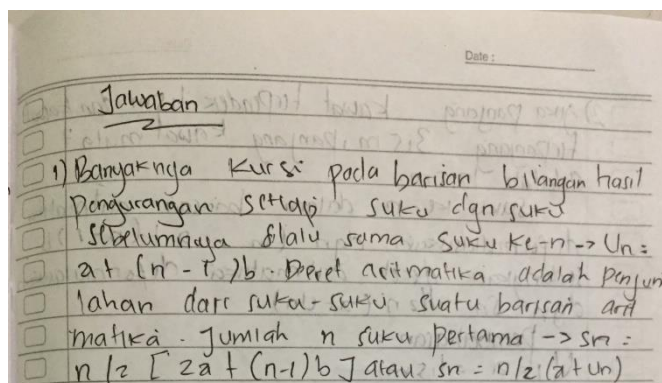 Date :
Jawaban
1) Banyaknya Kursi pada barisan bilangan hasil
Pengurangan setiap suku dgn suku
sebelumnya slalu sama suku ke-n -> Un =
a + (n - 1)b. Deret aritmatika adalah penjum
lahan dari suku-suku suatu barisan arit
matika. Jumlah n suku pertama -> sn =
n/2 [2a + (n-1) b] atau sn = n/2 (a + un)